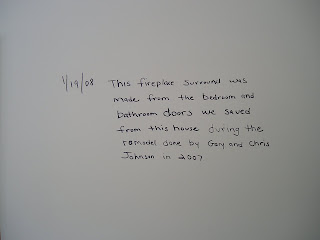 1/19/08 This fireplace surround was
made from the bedroom and
bathroom doors we saved
from this house during the
remodel done by Gary and Chris
Johnson in 2007